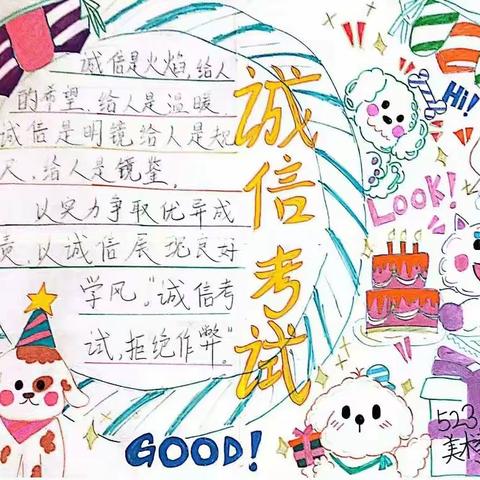 诚信是火焰,给人
的希望、给人是温暖.
诚信是明镜给人是规
尺,给人是镜鉴.
以实力争取优异成
责,以诚信展现良好
学风,"诚信考
试,拒绝作弊。"
诚信考试
Hi!
LOOK!
GOOD!
523
美术